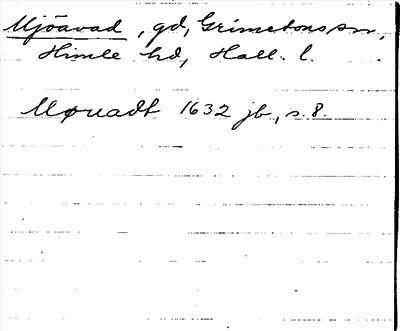 Mjöavad, gd, Grimetons sn,
Himle hd, Hall. l.
Møuadt 1632 jb, s. 8.